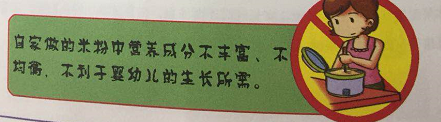 自家做的米粉中营养成分不丰富、不
均衡，不利于婴幼儿的生长所需。